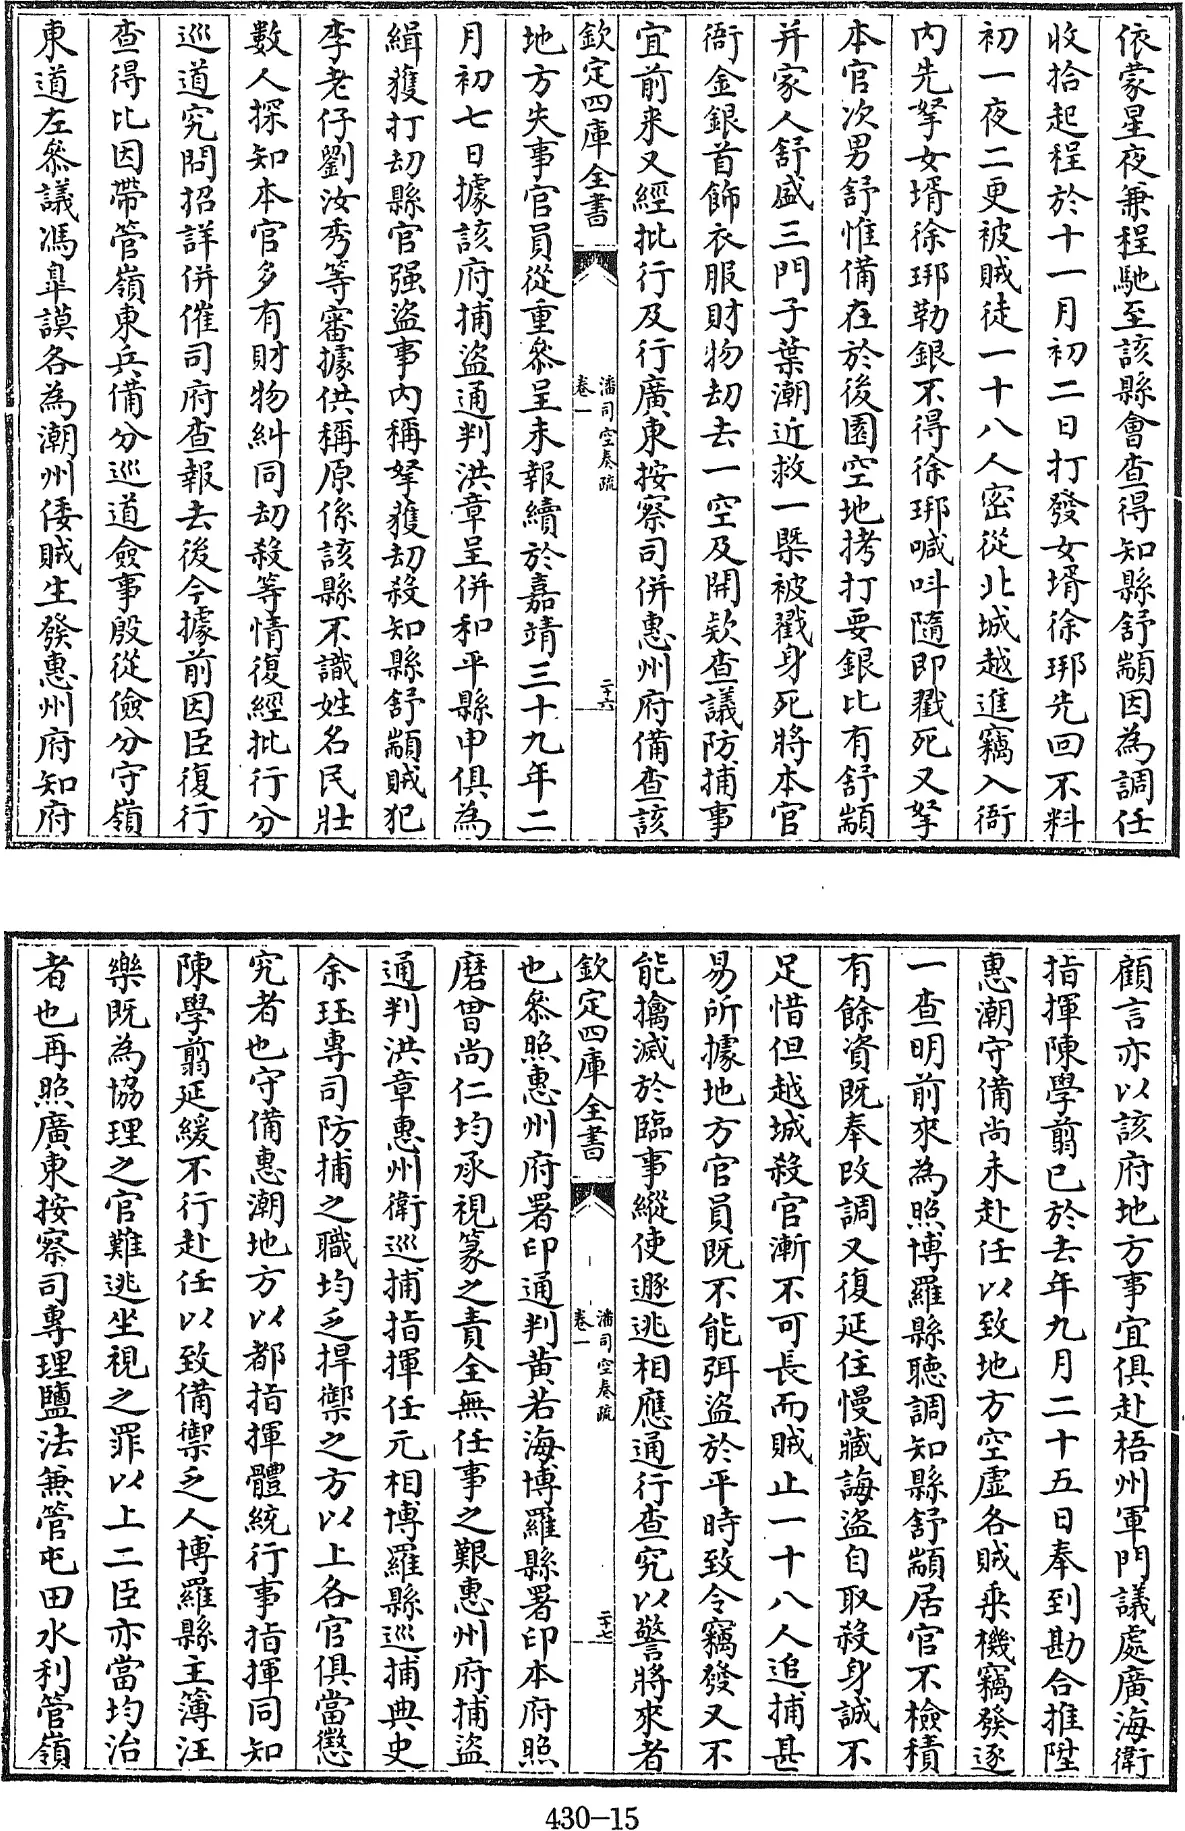 依蒙星夜兼程馳至該縣會查得知縣舒顓因為調任
收拾起程於十一月初二日打發女壻徐琊先回不料
初一夜二更被賊徒一十八人密從北城越進竊入衙
内先拏女壻徐琊勒銀不得徐琊喊呌隨即戳死又拏
本官次男舒惟備在於後園空地拷打要銀比有舒顓
并家人舒盛三門子葉潮近救一槩被戳身死將本官
衙金銀首飾衣服財物刼去一空及開欵查議防捕事
宜前来又經批行及行廣東按察司併惠州府備查該
欽定四庫全書
潘司空奏疏
卷一
二十六
地方失事官員從重叅呈未報續於嘉靖三十九年二
月初七日據該府捕盜通判洪章呈併和平縣申俱為
緝獲打刼縣官强盜事内稱拏獲刼殺知縣舒顓賊犯
李老仔劉汝秀等審據供稱原係該縣不識姓名民壯
數人探知本官多有財物糾同刼殺等情復經批行分
巡道究問招詳併催司府查報去後今據前因臣復行
查得比因帶管嶺東兵備分巡道僉事殷從儉分守嶺
東道左叅議馮臯謨各為潮州倭賊生發惠州府知府
顧言亦以該府地方事宜俱赴梧州軍門議處廣海衛
指揮陳學翦已於去年九月二十五日奉到勘合推陞
惠潮守備尚未赴任以致地方空虛各賊乘機竊發逐
一查明前來為照博羅縣聽調知縣舒顓居官不檢積
有餘資既奉改調又復延住慢藏誨盜自取殺身誠不
足惜但越城殺官漸不可長而賊止一十八人追捕甚
易所據地方官員既不能弭盜於平時致令竊發又不
能擒滅於臨事縱使遯逃相應通行查究以警將來者
欽定四庫全書
潘司空奏疏
卷一
二十七
也叅照惠州府署印通判黄若海博羅縣署印本府照
磨曾尚仁均承視篆之責全無任事之艱惠州府捕盜
通判洪章惠州衛巡捕指揮任元相博羅縣巡捕典史
余珏專司防捕之職均乏捍禦之方以上各官俱當懲
究者也守備惠潮地方以都指揮體統行事指揮同知
陳學翦延緩不行赴任以致備禦乏人博羅縣主簿汪
樂既為協理之官難逃坐視之罪以上二臣亦當均治
者也再照廣東按察司專理鹽法兼管屯田水利管嶺
430-15